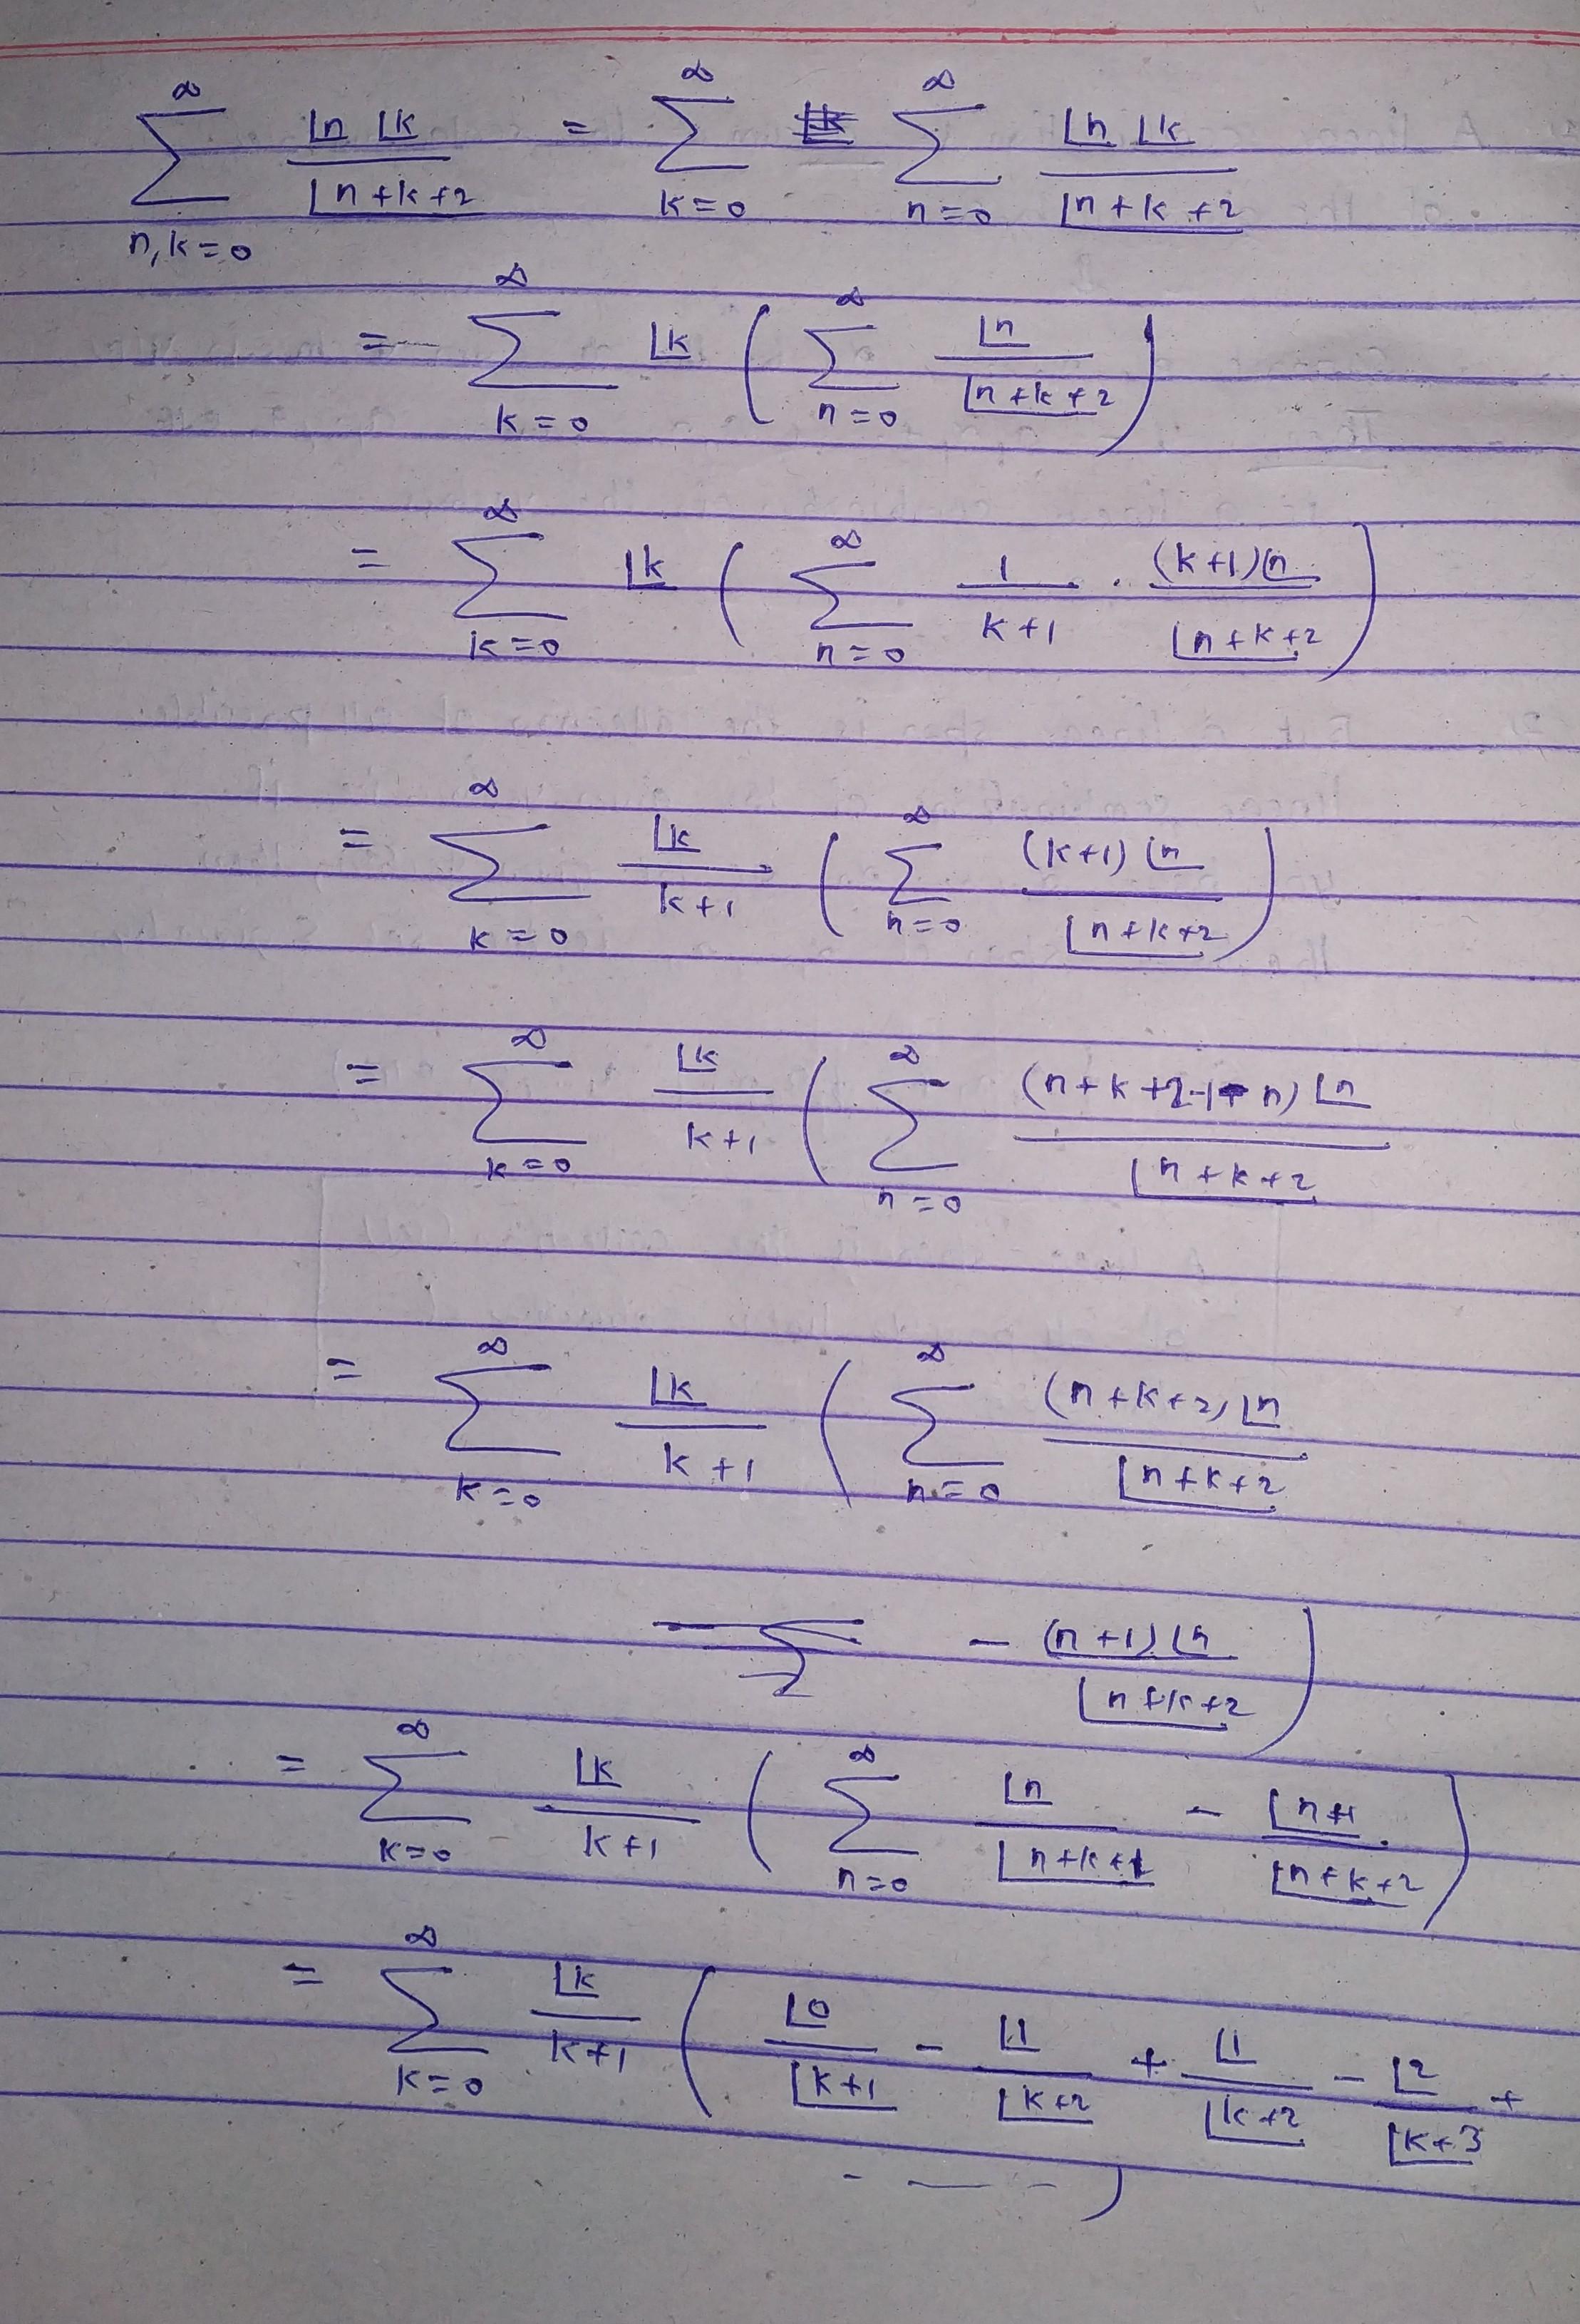 ∞∑n,k=0 ⌊n ⌊k / ⌊n+k+2 = ∞∑k=0 ∞∑n=0 ⌊n ⌊k / ⌊n+k+2
= ∞∑k=0 ⌊k ( ∞∑n=0 ⌊n / ⌊n+k+2 )
= ∞∑k=0 ⌊k ( ∞∑n=0 1 / k+1 . (k+1)⌊n / ⌊n+k+2 )
= ∞∑k=0 ⌊k / k+1 ( ∞∑n=0 (k+1)⌊n / ⌊n+k+2 )
= ∞∑k=0 ⌊k / k+1 ( ∞∑n=0 (n+k+2-1-n)⌊n / ⌊n+k+2
= ∞∑k=0 ⌊k / k+1 ( ∞∑n=0 (n+k+2)⌊n / ⌊n+k+2
- (n+1)⌊n / ⌊n+k+2 )
= ∞∑k=0 ⌊k / k+1 ( ∞∑n=0 ⌊n / ⌊n+k+1 - ⌊n+1 / ⌊n+k+2 )
= ∞∑k=0 ⌊k / k+1 ( ⌊0 / ⌊k+1 - ⌊1 / ⌊k+2 + ⌊1 / ⌊k+2 - ⌊2 / ⌊k+3 +
- - - )